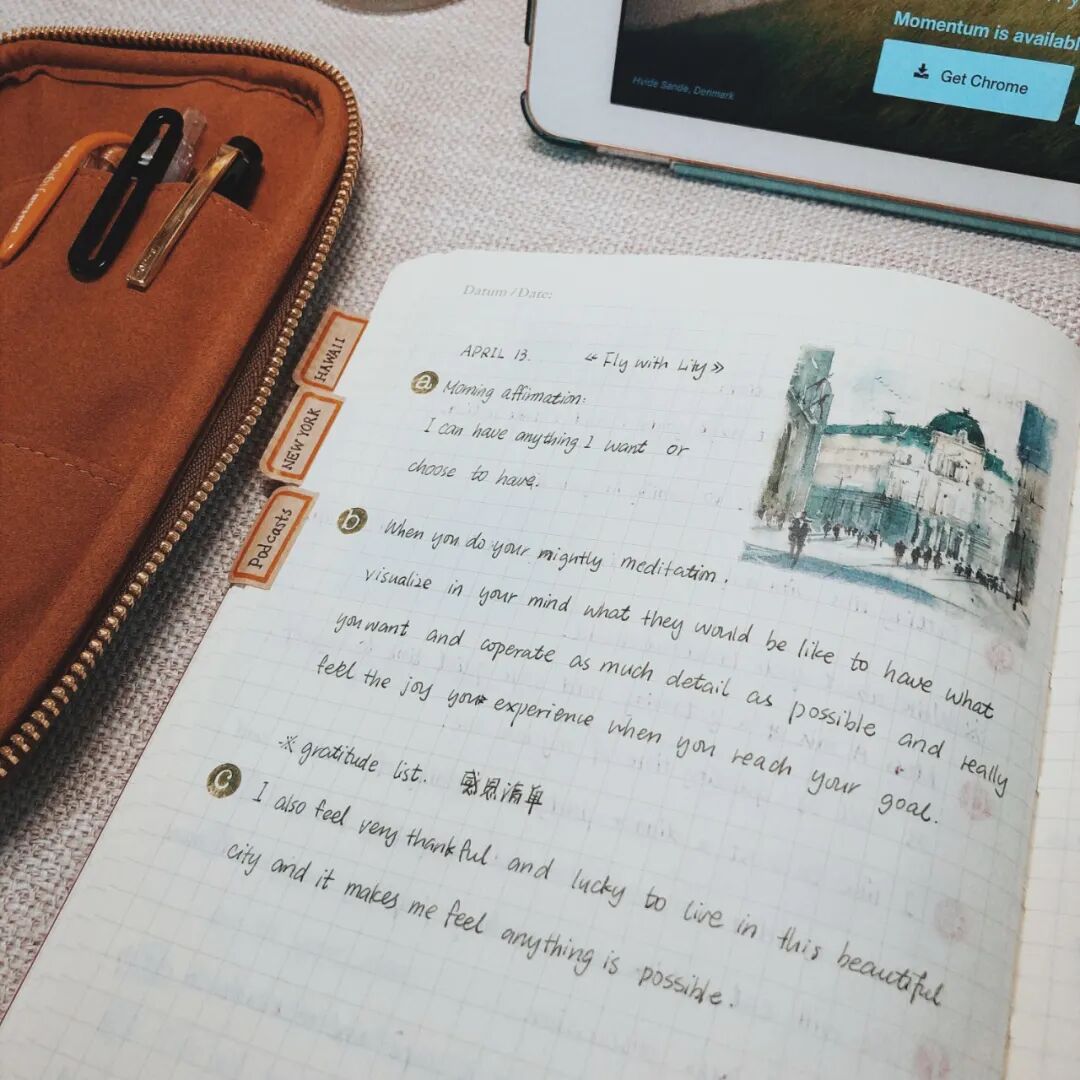 Momentum is availabl
Get Chrome
Hvide Sande, Denmark
Datum / Date:
APRIL 13. 《Fly with Lily》
a Morning affirmation:
I can have anything I want or
choose to have.
b When you do your mightly meditation.
visualize in your mind what they would be like to have what
you want and coperate as much detail as possible and really
feel the joy your experience when you reach your goal.
※ gratitude list. 感恩清单
c I also feel very thankful and lucky to live in this beautiful
city and it makes me feel anything is possible.
HAWAII
NEW YORK
Podcasts